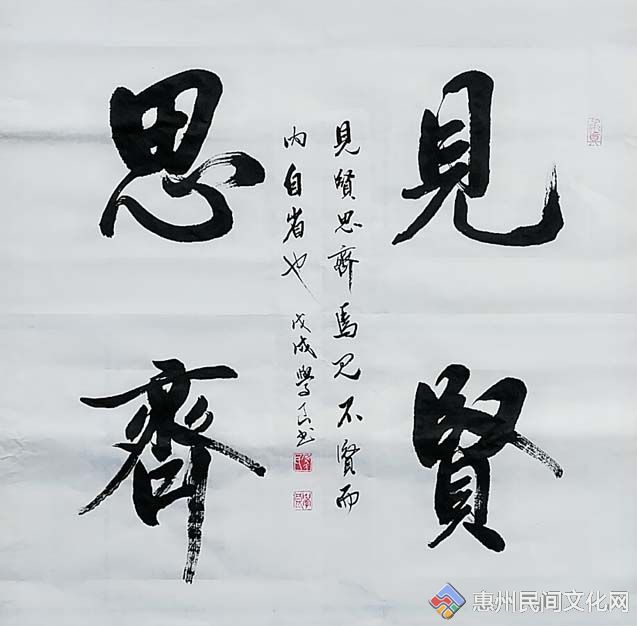 見賢
思齊
見賢思齊焉見不賢而
內自省也 戊戌學書
惠州民间文化网